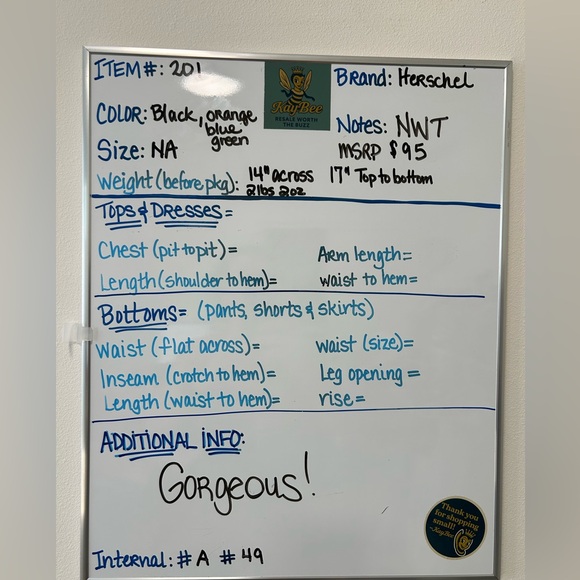 ITEM#: 201
KayBee
RESALE WORTH
THE BUZZ
Brand: Herschel
COLOR: Black, orange
blue
green
Notes: NWT
MSRP $95
Size: NA
Weight (before pkg): 14" across 17" Top to bottom
2lbs 2oz
Tops & Dresses=
Chest (pit to pit)= Arm length=
Length (shoulder to hem)= waist to hem=
Bottoms= (pants, shorts & skirts)
Waist (flat across)= waist (size)=
Inseam (crotch to hem)= Leg opening=
Length (waist to hem)= rise=
ADDITIONAL INFO:
Gorgeous!
Thank you
for shopping
small!
-KayBee
Internal: #A #49